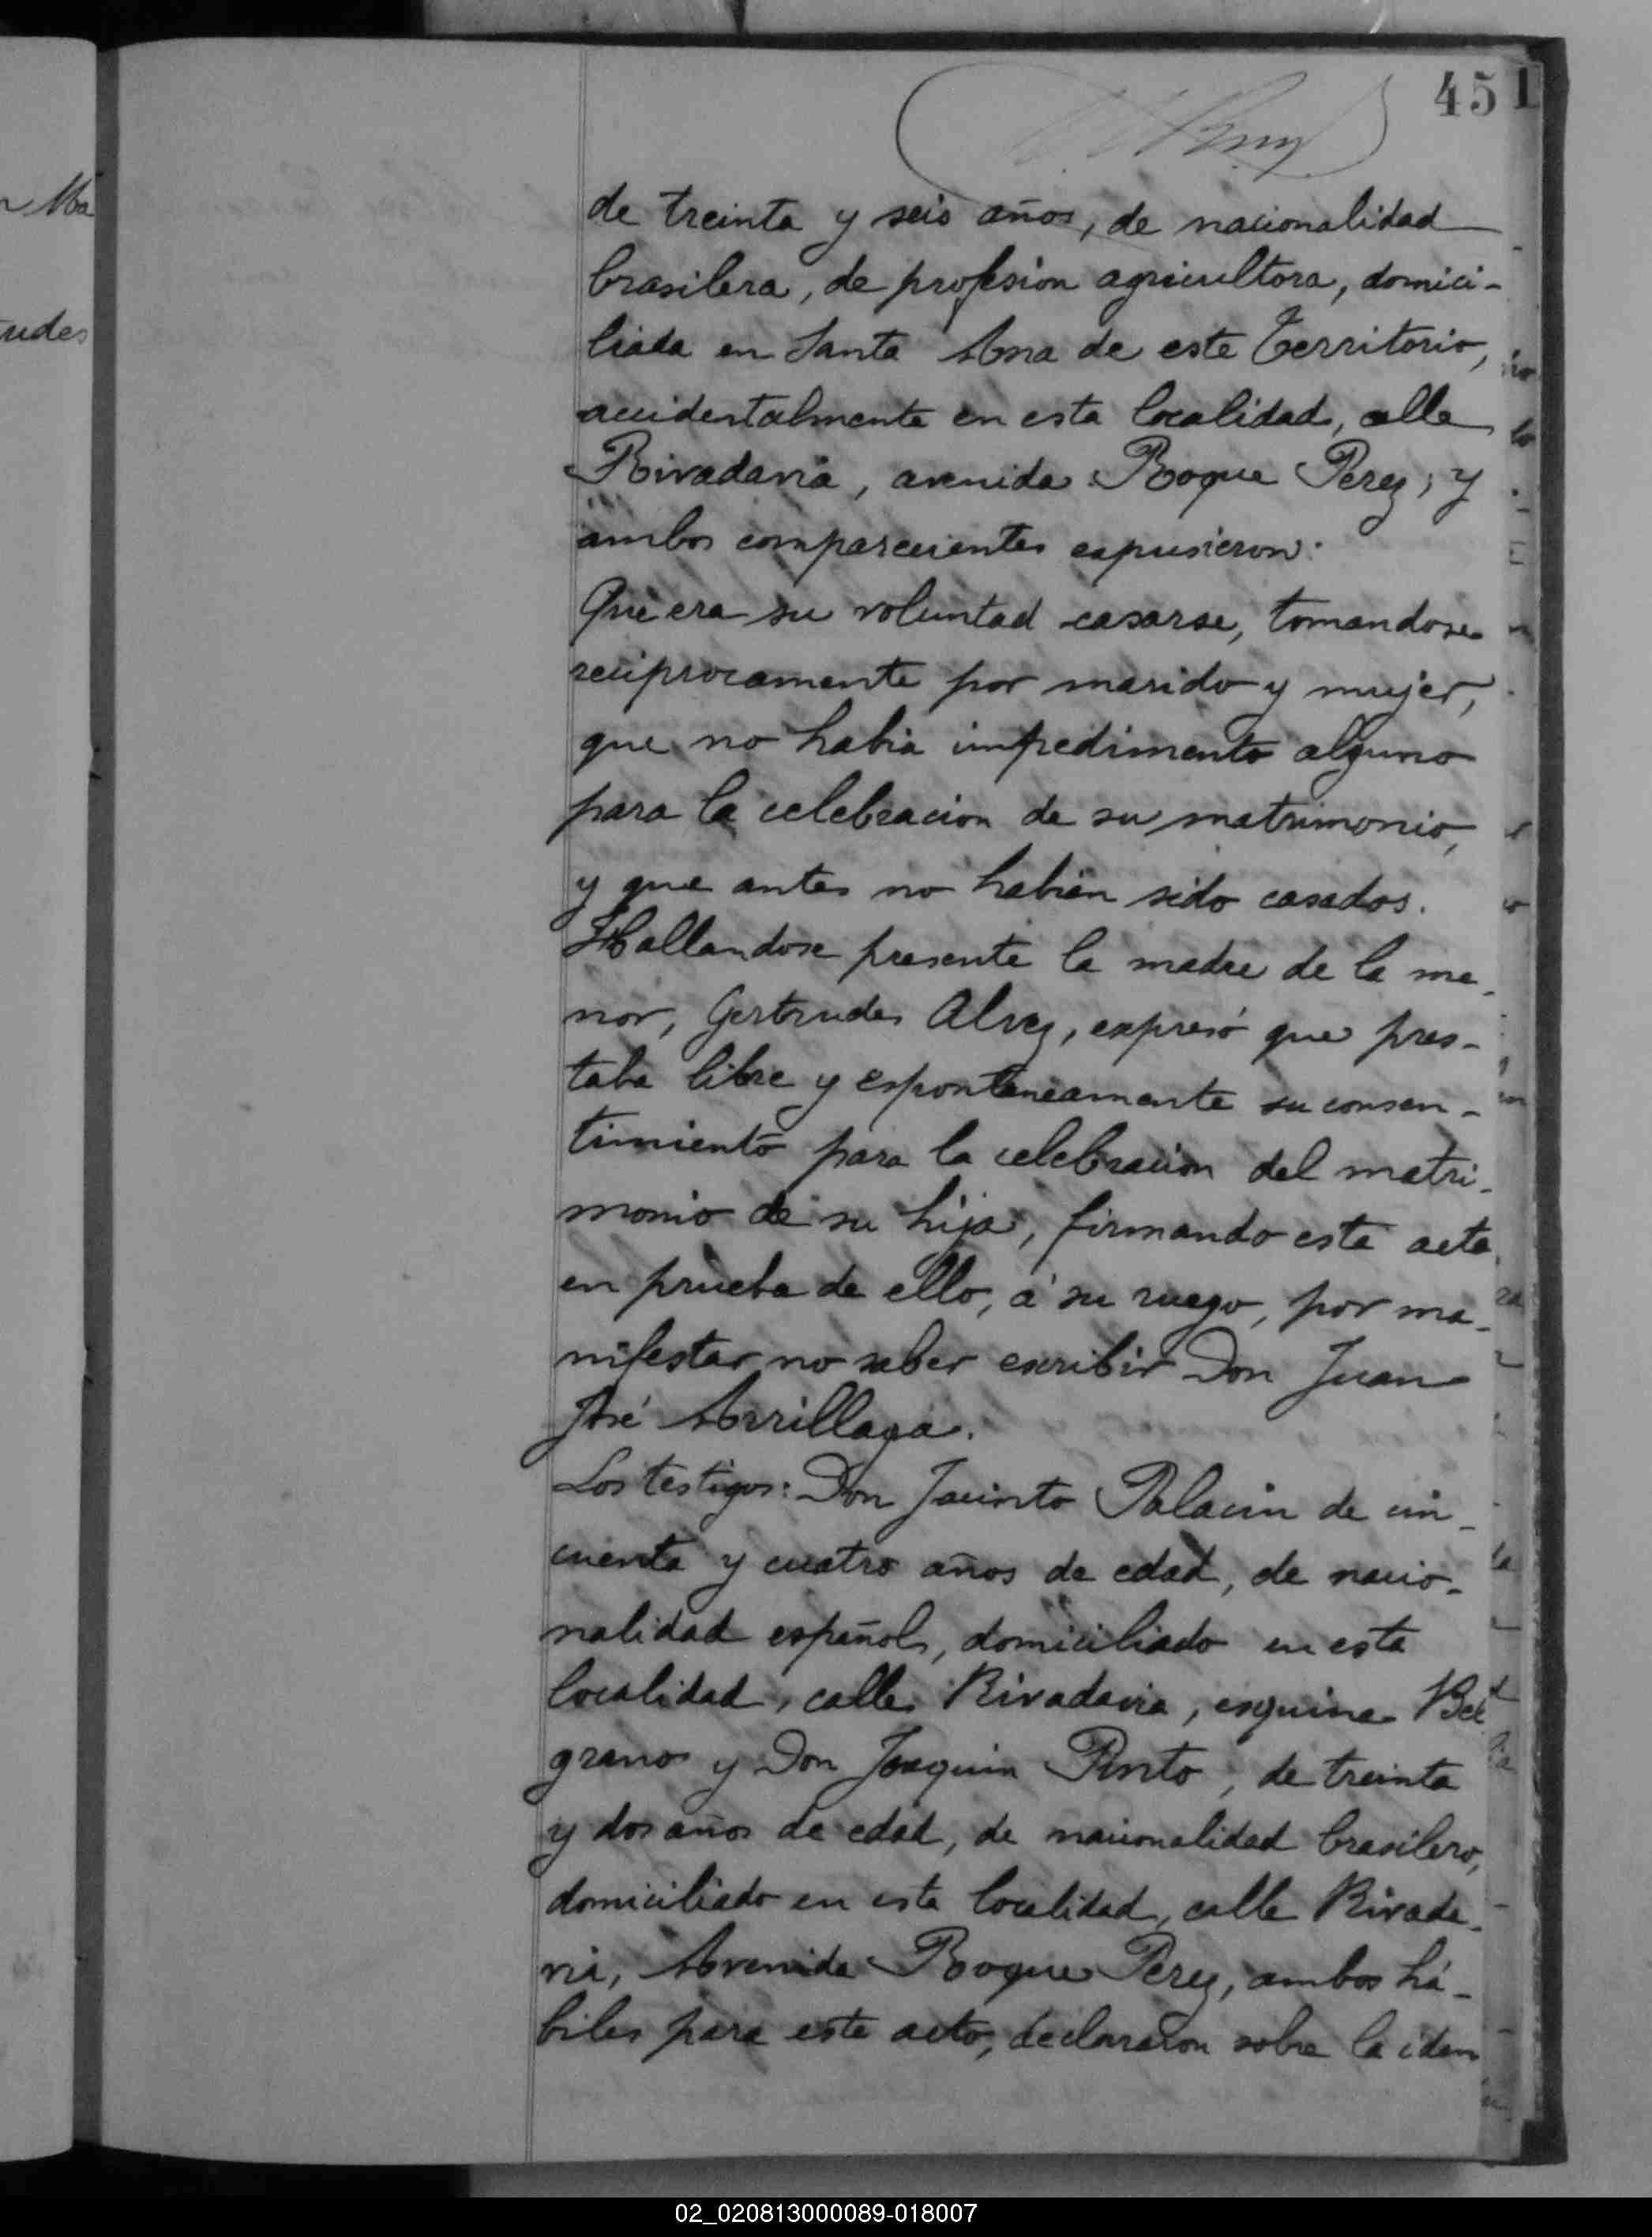 45
de treinta y seis años, de nacionalidad
brasilera, de profesion agricultora, domici-
liada en Santa Ana de este Territorio,
accidentalmente en esta localidad, calle
Rivadavia, avenida Roque Perez; y
ambos comparecientes expusieron:
Que era su voluntad casarse, tomandose
reciprocamente por marido y mujer,
que no habia impedimento alguno
para la celebracion de su matrimonio,
y que antes no habian sido casados.
Hallandose presente la madre de la me-
nor, Gertrudes Alvez, expresó que pres-
taba libre y espontaneamente su consen-
timiento para la celebracion del matri-
monio de su hija, firmando este acta
en prueba de ello, á su ruego, por ma-
nifestar no saber escribir Don Juan
José Arrillaga.
Los testigos: Don Jacinto Palacin de cin-
cuenta y cuatro años de edad, de nacio-
nalidad español, domiciliado en esta
localidad, calle Rivadavia, esquina Bel
grano y Don Joaquin Pinto, de treinta
y dos años de edad, de nacionalidad brasilero,
domiciliado en esta localidad, calle Rivada-
via, Avenida Roque Perez, ambos há-
biles para este acto, declararon sobre la iden
02_020813000089-018007